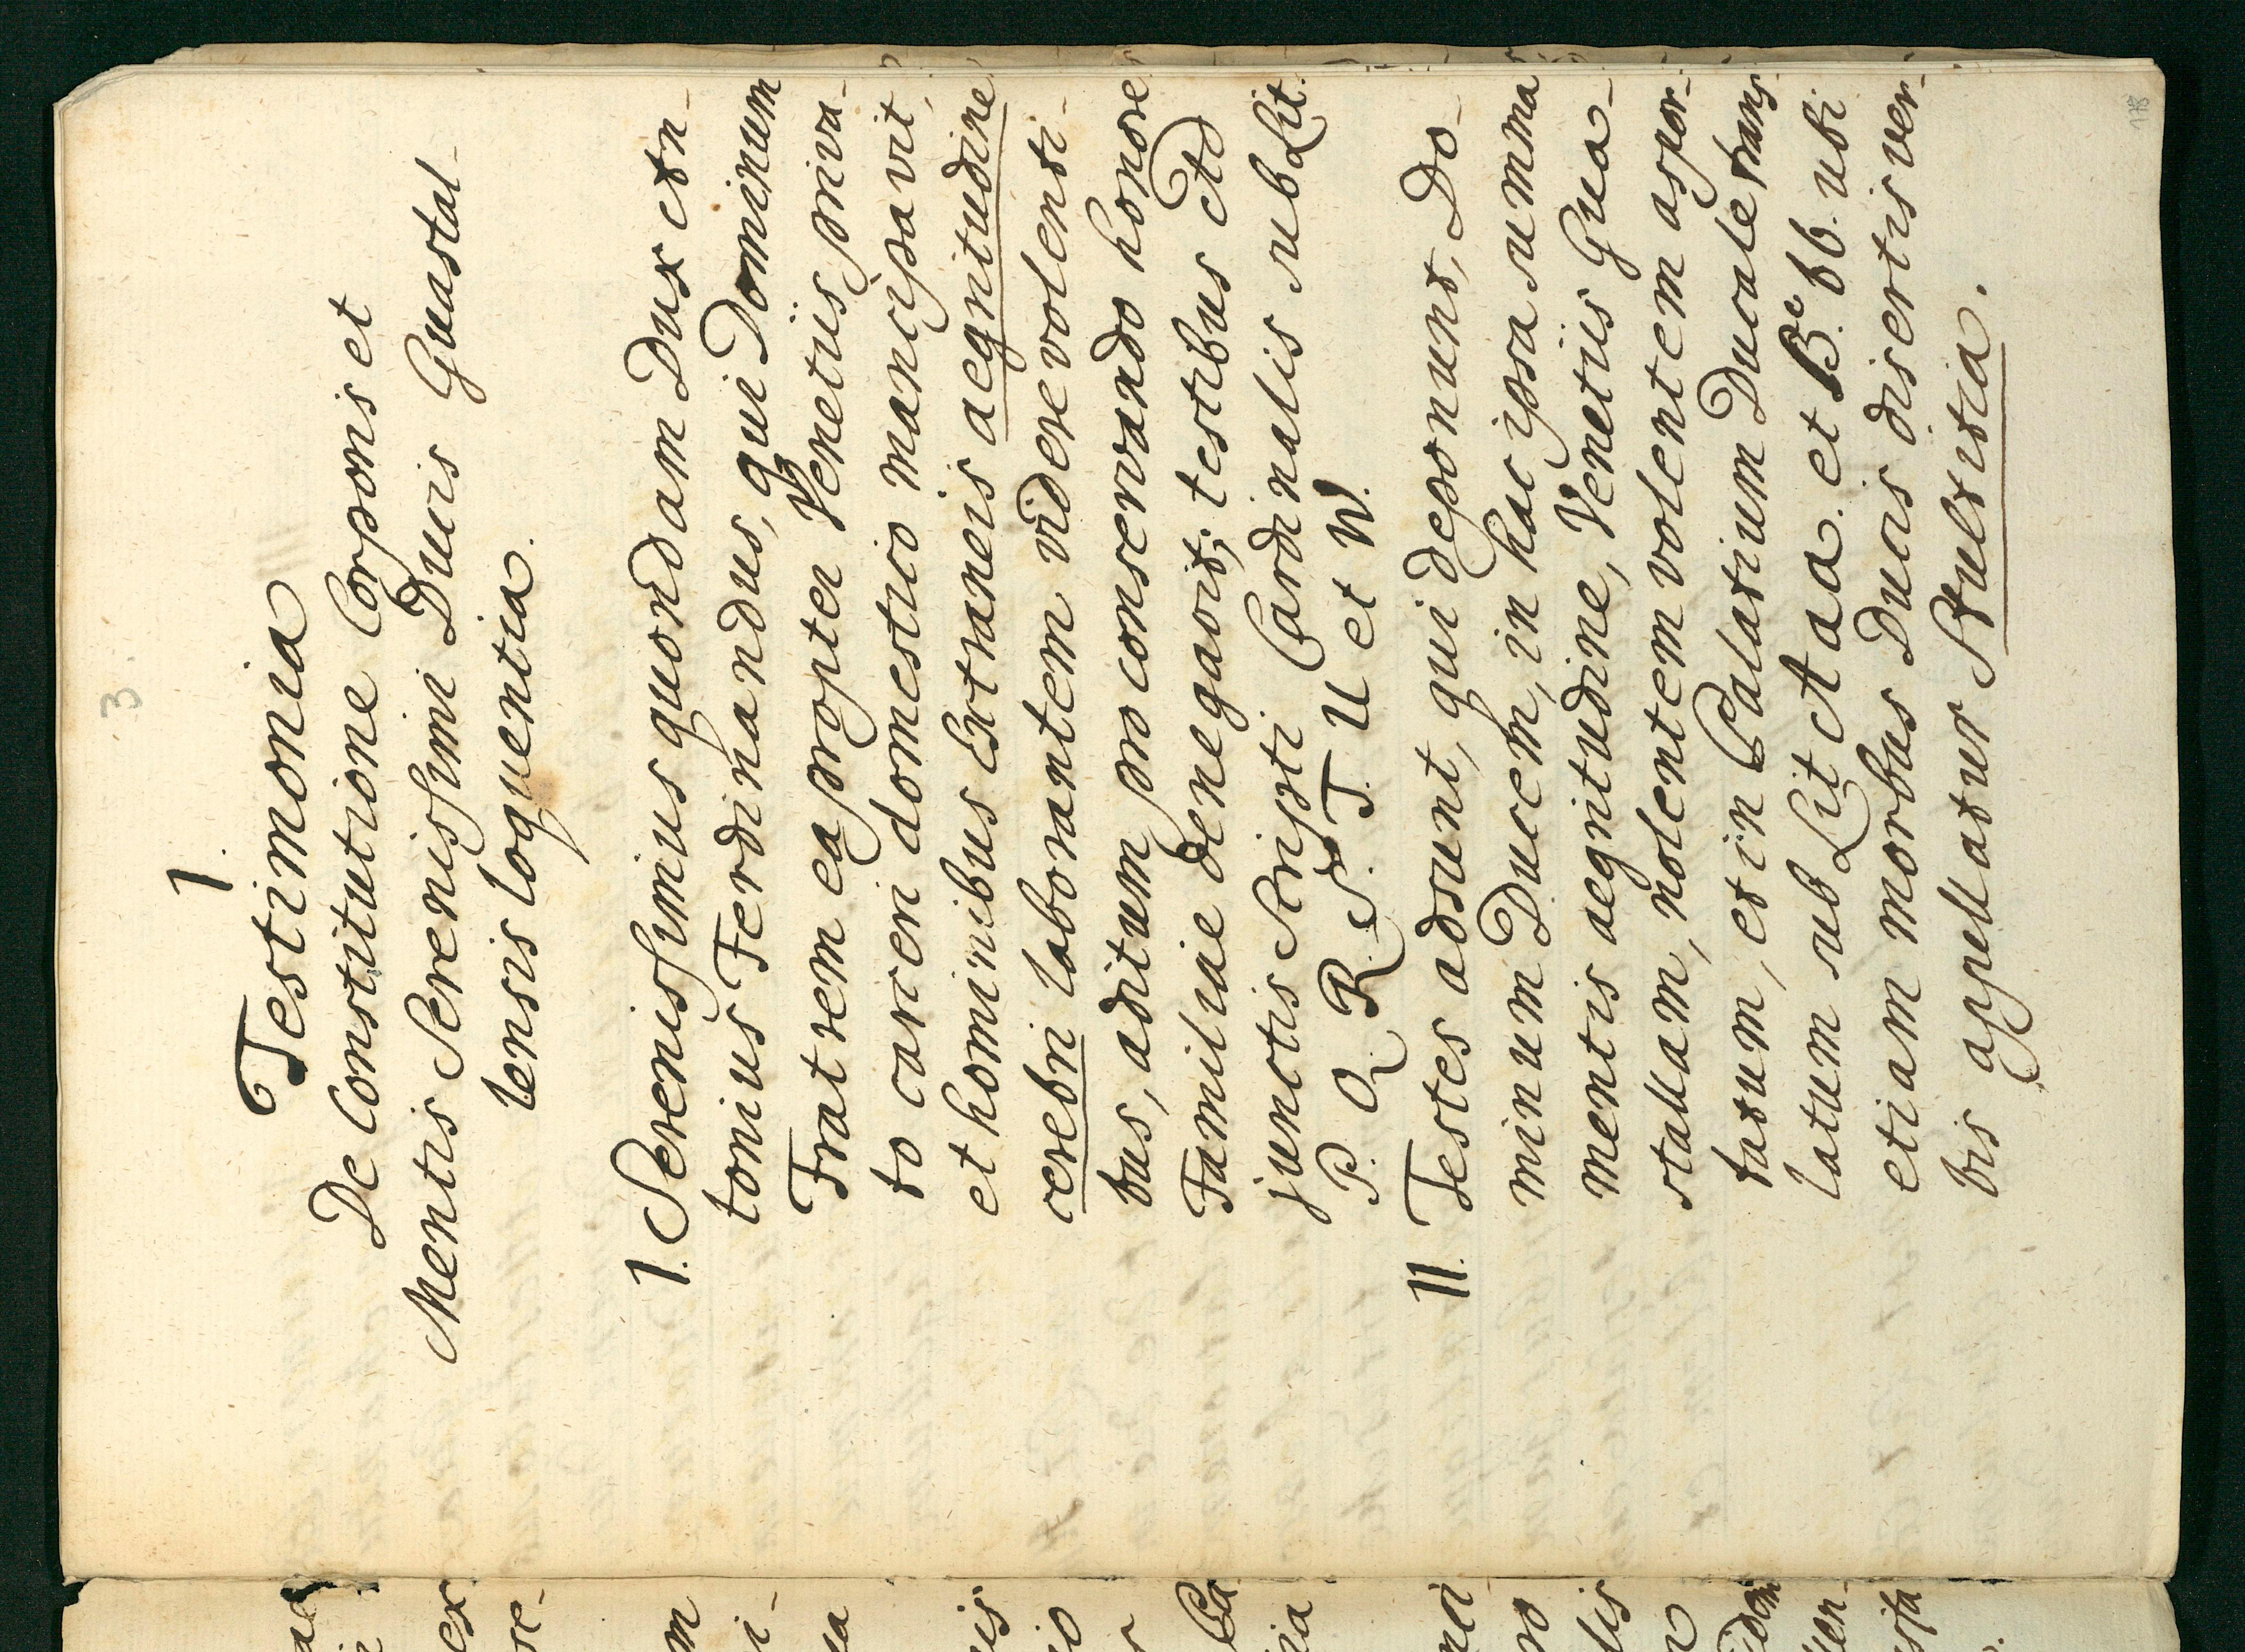 3
I.
Testimonia
De Constitutione Corporis et
Mentis Serenissimi Ducis Guastal-
lensis loquentia.
I. Serenissimus quondam Dux An-
tonius Ferdinandus, qui Dominum
Fratrem ea propter Venetiis priva-
to carceri domestico mancipavit,
et hominibus Extraneis aegritudine
cerebri laborantem videre volenti-
bus, aditum pro conservando honore
Familiae denegavit; testibus Ad
junctis Scripti Cardinalis sub Lit.
P. Q. R. S. T. U et W.
II. Testes adsunt, qui deponunt, Do-
minum Ducem, in hac ipsa summa
mentis aegritudine, Venetiis Gua-
stallam, nolentem volentem aspor-
tatum, et in Palatium Ducale trans-
latum sub Lit Aa. et B.c bb. ubi
etiam morbus Ducis disertis ver-
bis appellatur Stultitia.
178